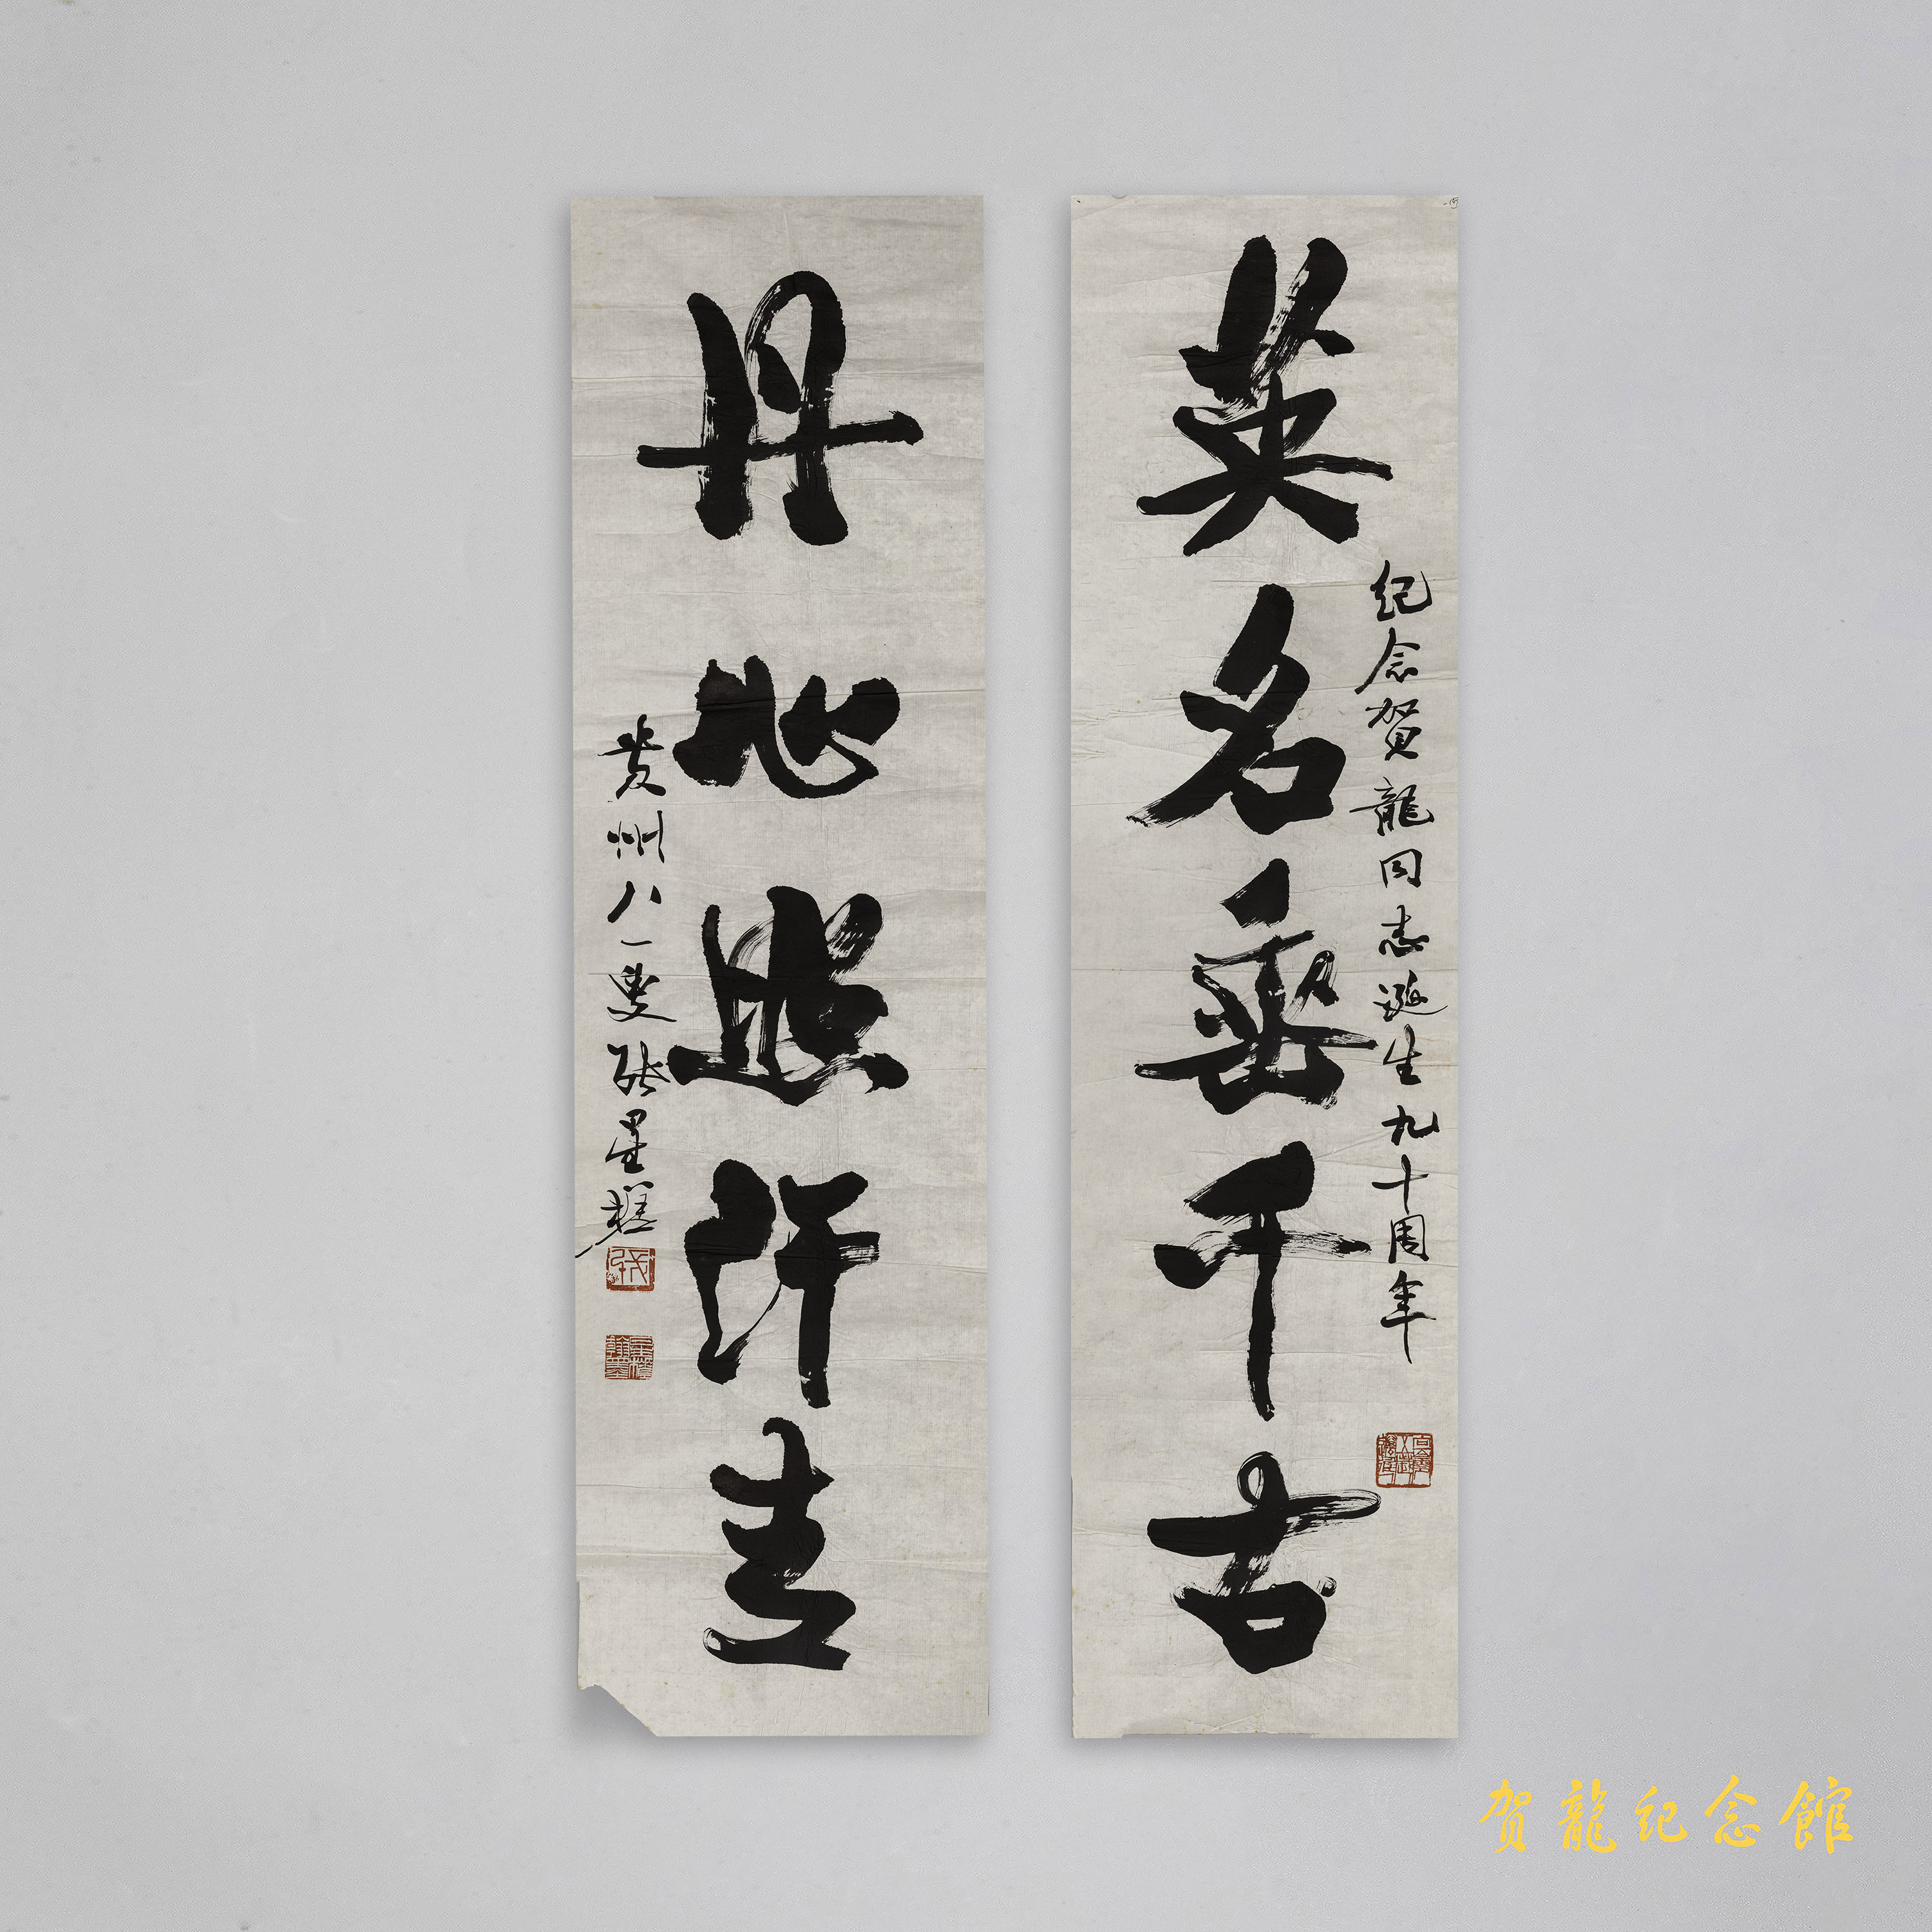 英名垂千古
纪念贺龍同志诞生九十周年
丹心照汗青
贵州八一叟张星槎
贺龍纪念館